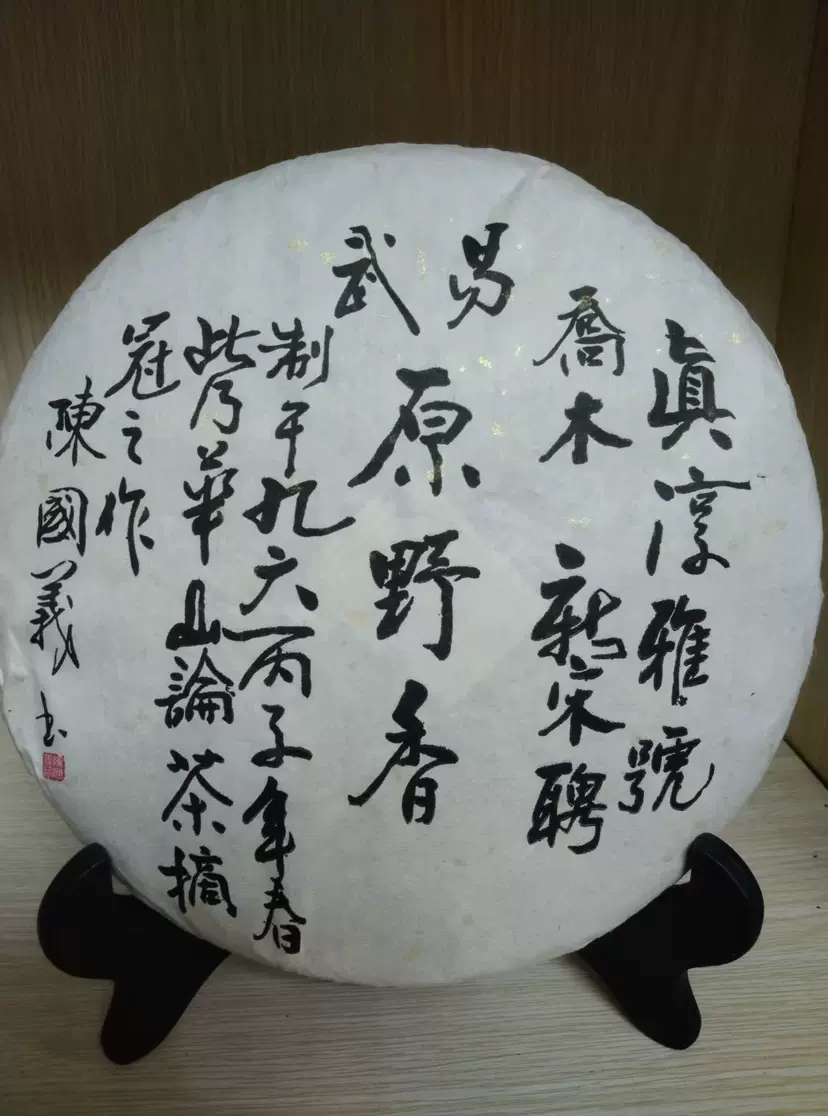 真淳雅號
喬木
宋聘
易武
原野香
制于九六丙子年春
此乃華山論茶摘
冠之作
陳國義书